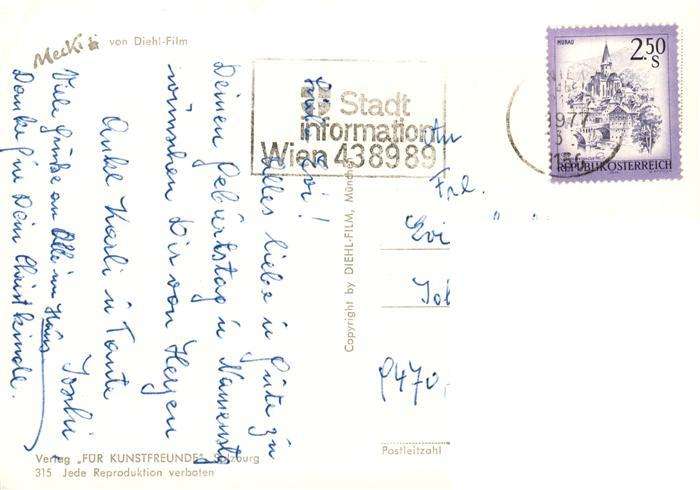 Mecki von Diehl-Film
Stadt
information
Wien 43 89 89
MURAU
2.50
S
REPUBLIK ÖSTERREICH
1977
Liebe Evi!
Alles liebe u Gute zu
Deinen Geburtstag u Namenstg
wünschen Dir von Herzen
Onkel Karli u Tante
Joschi
Viele Grüße an Alle im Haus
Danke für Dein Christkindl.
Copyright by DIEHL-FILM, München
An
Frl.
Evi
9470,
Postleitzahl
Verlag „FÜR KUNSTFREUNDE" Salzburg
315 Jede Reproduktion verboten